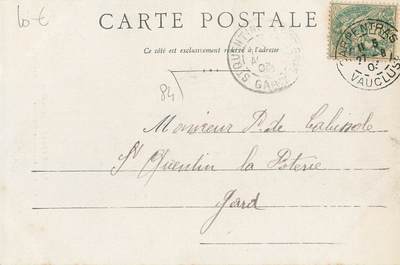 10 €
CARTE POSTALE
Ce côté est exclusivement réservé à l'adresse
ST QUENTIN GARD
CARPENTRAS
VAUCLUSE
84
Monsieur P. de
St Quentin la Poterie
Gard